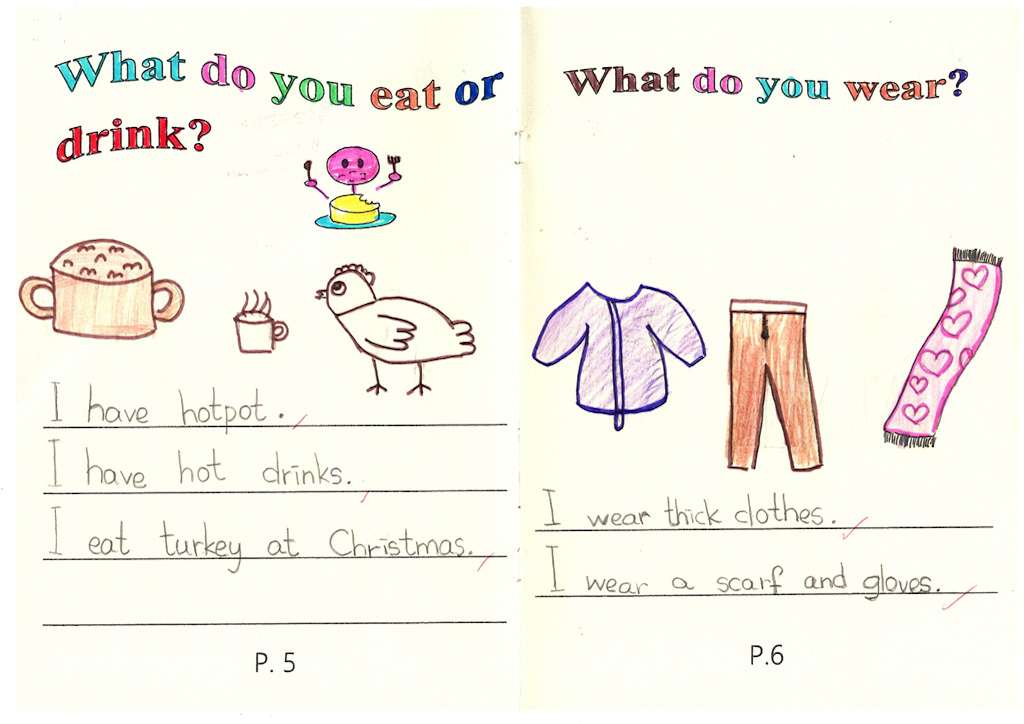 What do you eat or
drink?
I have hotpot.
I have hot drinks.
I eat turkey at Christmas.
P. 5
What do you wear?
I wear thick clothes.
I wear a scarf and gloves.
P.6